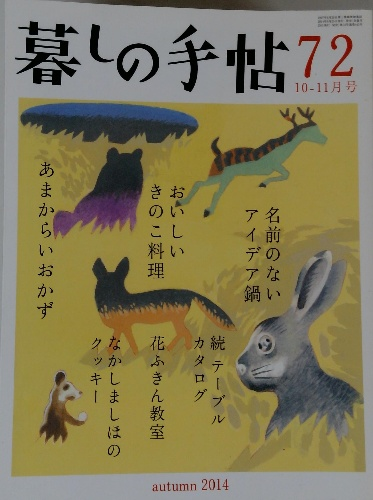 暮しの手帖
72
10-11月号
名前のない
アイデア鍋
おいしい
きのこ料理
あまからいおかず
続 テーブル
カタログ
花ふきん教室
なかしましほの
クッキー
autumn 2014